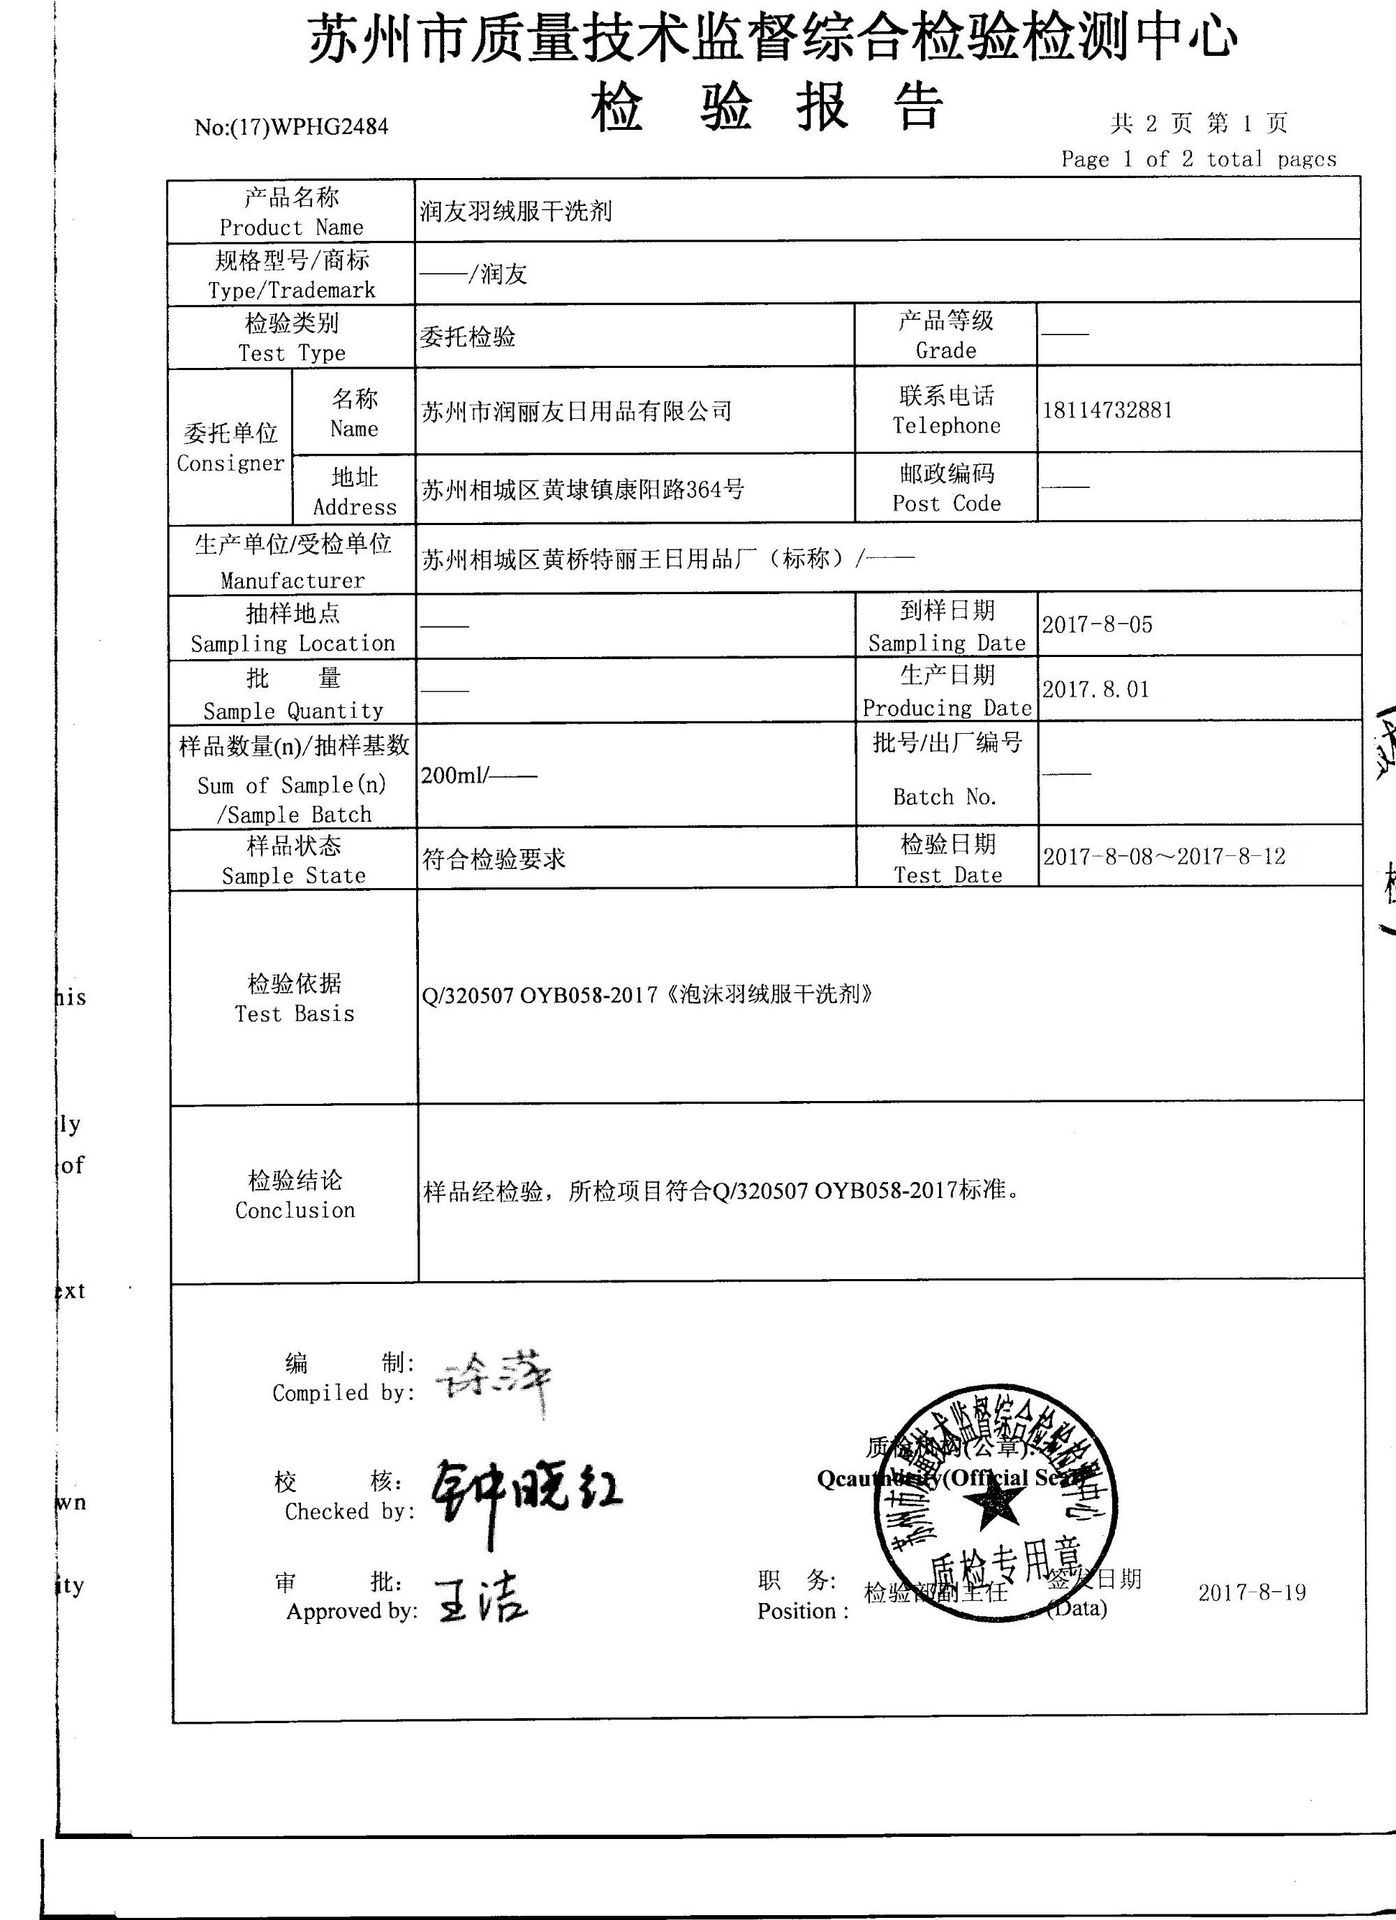 苏州市质量技术监督综合检验检测中心
检 验 报 告
No:(17)WPHG2484
共 2 页 第 1 页
Page 1 of 2 total pages
产品名称
Product Name
润友羽绒服干洗剂
规格型号/商标
Type/Trademark
——/润友
检验类别
Test Type
委托检验
产品等级
Grade
——
委托单位
Consigner
名称
Name
苏州市润丽友日用品有限公司
联系电话
Telephone
18114732881
地址
Address
苏州相城区黄埭镇康阳路364号
邮政编码
Post Code
——
生产单位/受检单位
Manufacturer
苏州相城区黄桥特丽王日用品厂（标称）/——
抽样地点
Sampling Location
——
到样日期
Sampling Date
2017-8-05
批 量
Sample Quantity
——
生产日期
Producing Date
2017.8.01
样品数量(n)/抽样基数
Sum of Sample(n)
/Sample Batch
200ml/——
批号/出厂编号
Batch No.
——
样品状态
Sample State
符合检验要求
检验日期
Test Date
2017-8-08～2017-8-12
检验依据
Test Basis
Q/320507 OYB058-2017《泡沫羽绒服干洗剂》
检验结论
Conclusion
样品经检验，所检项目符合Q/320507 OYB058-2017标准。
编 制:
Compiled by:
徐萍
校 核:
Checked by:
钟晓红
审 批:
Approved by:
王洁
质检机构(公章):
Qcauthority(Official Seal)
苏州市质量技术监督综合检验检测中心
质检专用章
职 务:
Position :
检验部副主任
签发日期
(Data)
2017-8-19
his
ly
of
ext
wn
ity